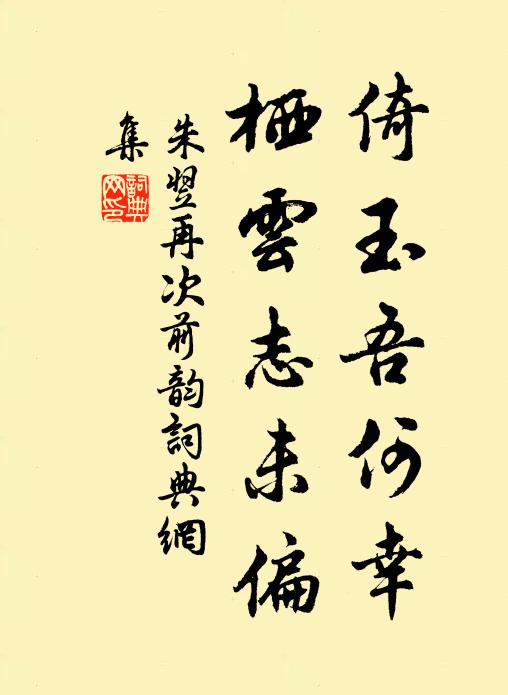 倚玉吾何幸
栖雲志未偏
朱翌再次前韵詞典網
集
詞典網印